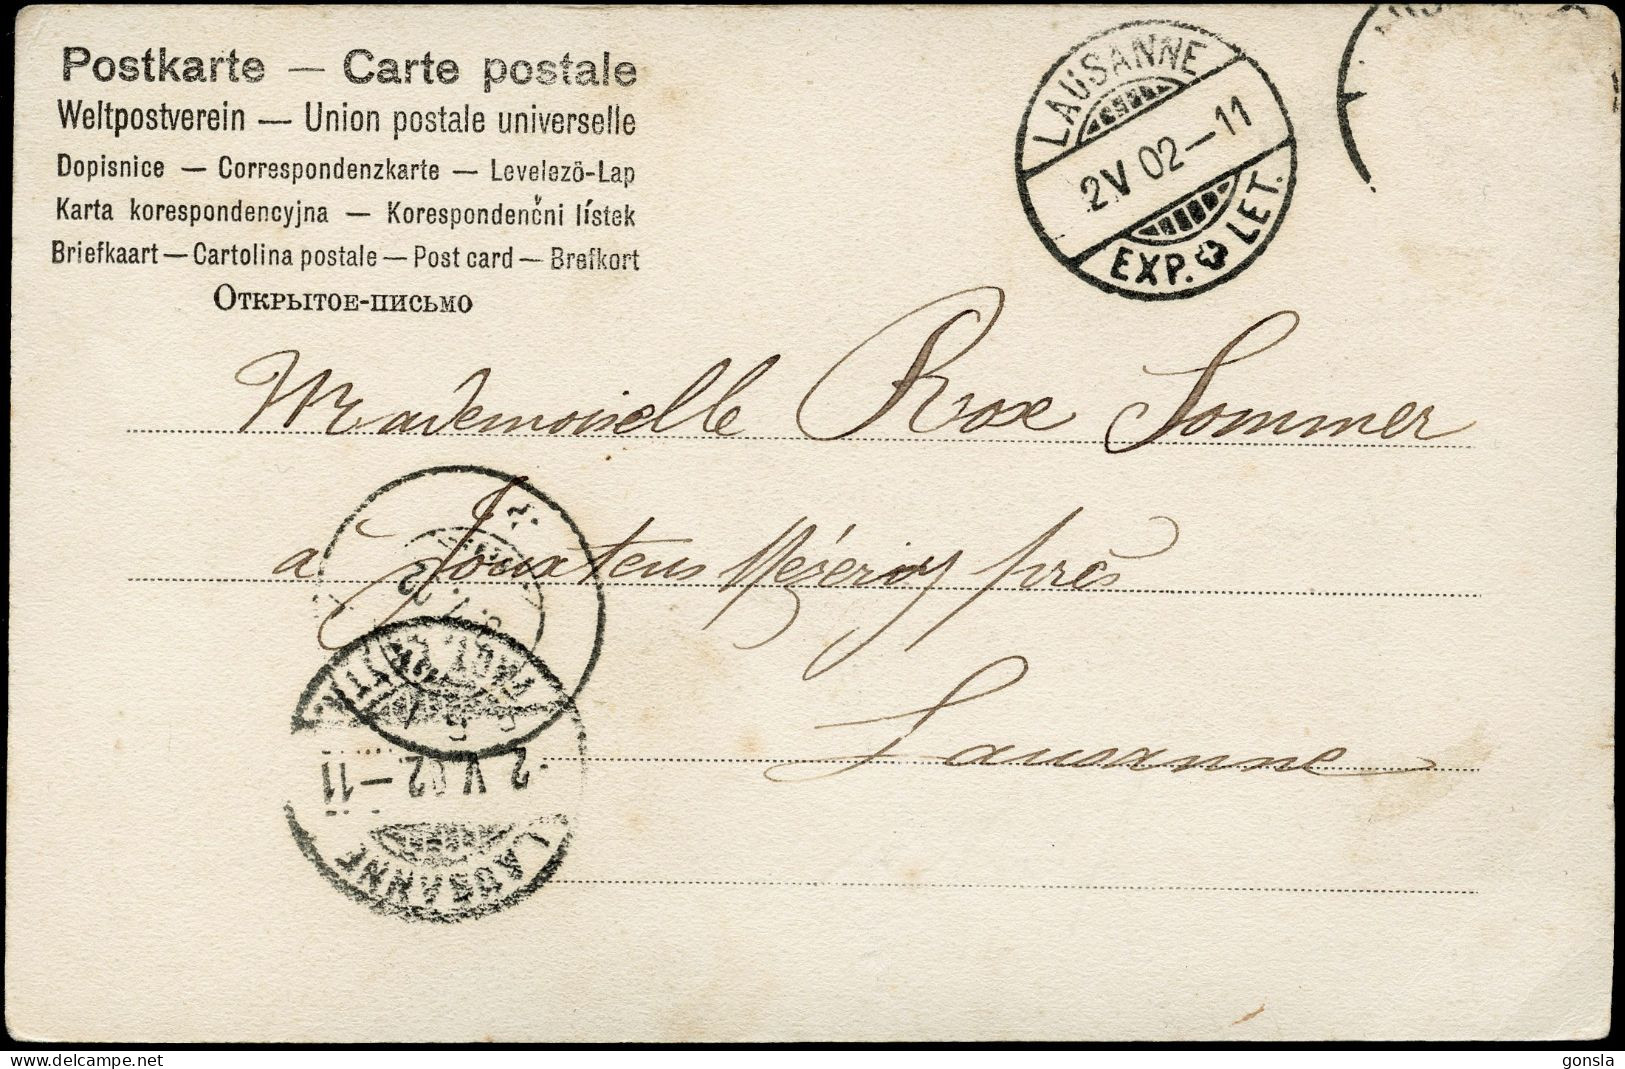 Postkarte — Carte postale
Weltpostverein — Union postale universelle
Dopisnice — Correspondenzkarte — Levelező-Lap
Karta korespondencyjna — Korespondenčni lístek
Briefkaart — Cartolina postale — Post card — Brefkort
Открытое-письмо
LAUSANNE
2 V 02—11
EXP. LET.
Mademoiselle Rose Sommer
à Jouxtens Mézeriy près
Lausanne
2 V 02—11
LAUSANNE
delcampe.net
gonsla